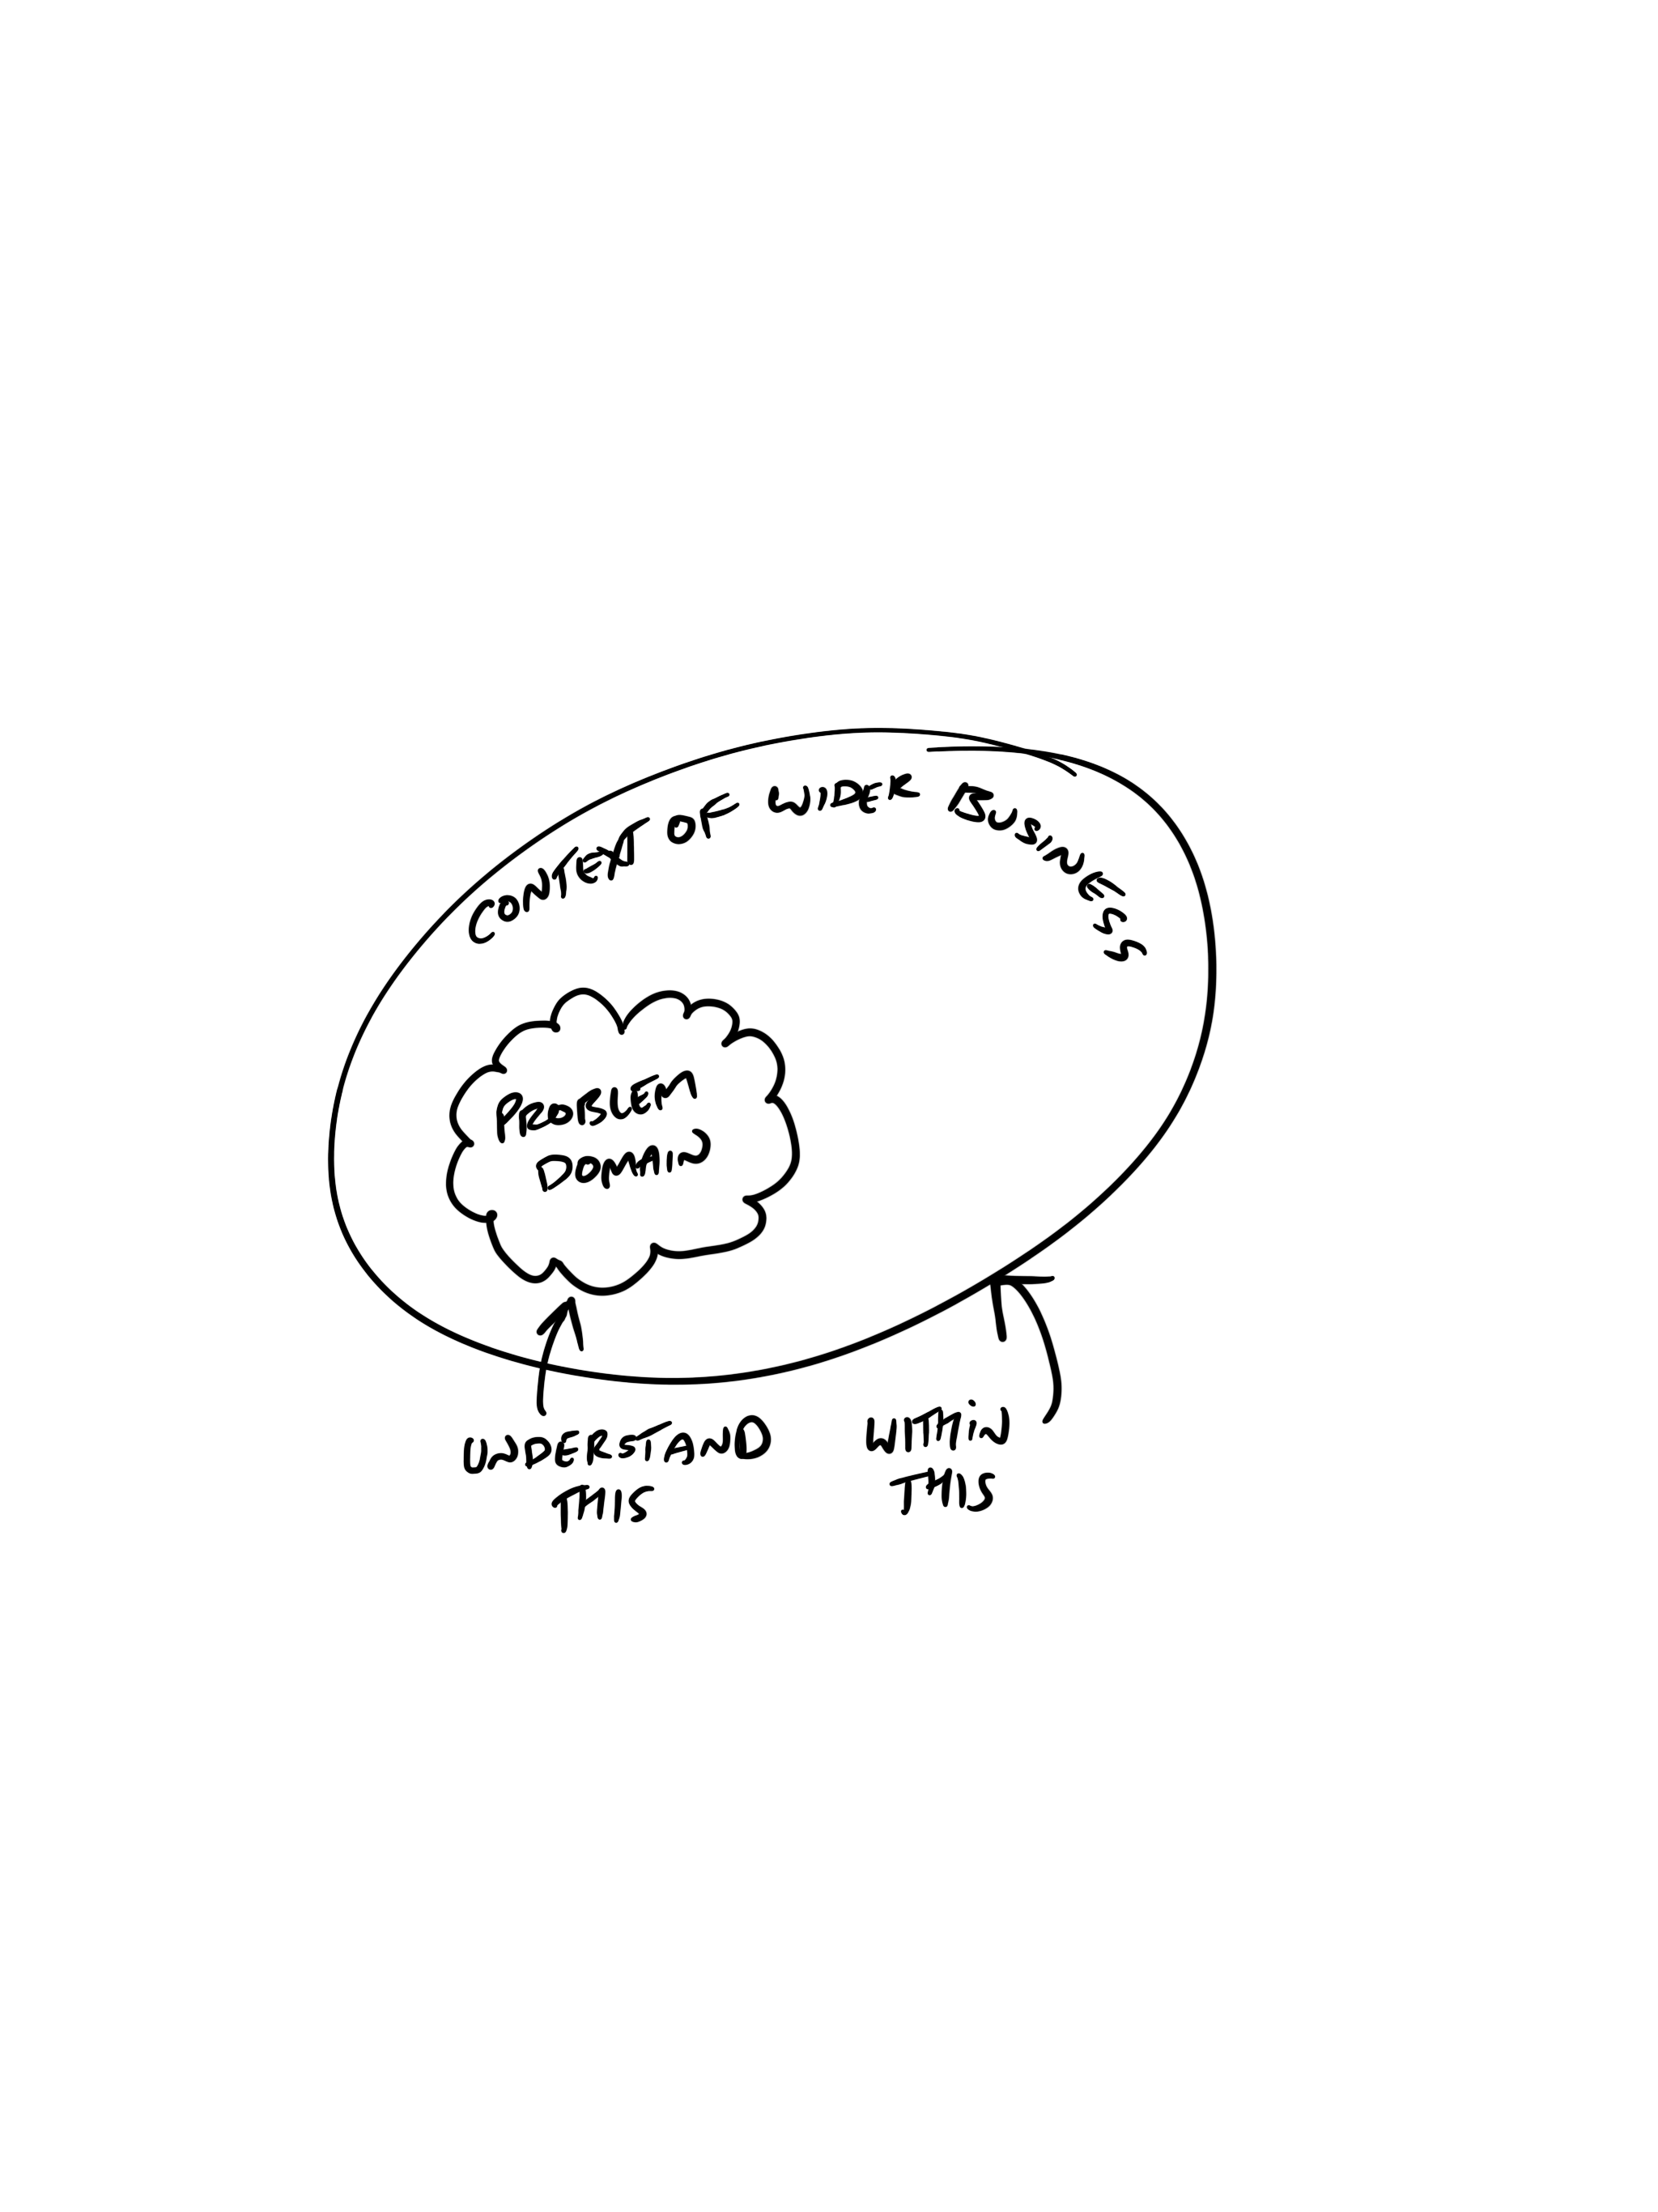 CONTEXT OF WIDER BUSINESS
PROBLEM
DOMAIN
UNDERSTAND
THIS
WITHIN
THIS